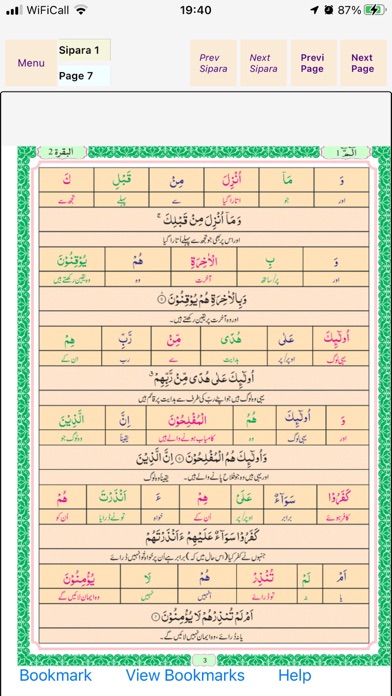 WiFiCall
19:40
87%
Menu
Sipara 1
Page 7
Prev Sipara
Next Sipara
Previ Page
Next Page
البقرة 2
الٓمّٓ 1
وَ مَآ اُنْزِلَ مِنْ قَبْلِ كَ
اور جو اتارا گیا سے پہلے تجھ سے
وَمَآ اُنْزِلَ مِنْ قَبْلِكَ ۚ
اور اس پر بھی جو تجھ سے پہلے اتارا گیا
وَ بِ الْاٰخِرَةِ هُمْ يُوْقِنُوْنَ
اور پر/ساتھ آخرت وہ وہ یقین رکھتے ہیں
وَبِالْاٰخِرَةِ هُمْ يُوْقِنُوْنَ
اور وہ آخرت پر یقین رکھتے ہیں۔
اُولٰٓئِكَ عَلٰى هُدًى مِّنْ رَّبِّ هِمْ
یہی لوگ اوپر/پر ہدایت سے رب ان کے
اُولٰٓئِكَ عَلٰى هُدًى مِّنْ رَّبِّهِمْ
یہی وہ لوگ ہیں جو اپنے رب کی طرف سے ہدایت پر قائم ہیں
وَ اُولٰٓئِكَ هُمُ الْمُفْلِحُوْنَ اِنَّ الَّذِيْنَ
اور یہی لوگ وہ کامیاب ہونے والے ہیں یقیناً وہ لوگ جو
وَاُولٰٓئِكَ هُمُ الْمُفْلِحُوْنَ اِنَّ الَّذِيْنَ
اور یہی ہیں وہ جو فلاح پانے والے ہیں۔ یقیناً وہ لوگ
كَفَرُوْا سَوَآءٌ عَلَىْ هِمْ ءَ اَنْذَرْتَ هُمْ
کافر ہوئے برابر اوپر/پر اُن کے خواہ تو نے ڈرایا اُن کو
كَفَرُوْا سَوَآءٌ عَلَيْهِمْ ءَاَنْذَرْتَهُمْ
جنہوں نے کفر کیا (اس حال میں کہ) برابر ہے ان پر خواہ تو انہیں ڈرائے
اَمْ لَمْ تُنْذِرْ هُمْ لَا يُؤْمِنُوْنَ
یا نہ تو ڈرائے انہیں نہیں وہ ایمان لائیں گے
اَمْ لَمْ تُنْذِرْهُمْ لَا يُؤْمِنُوْنَ
یا نہ ڈرائے، وہ ایمان نہیں لائیں گے۔
3
Bookmark
View Bookmarks
Help